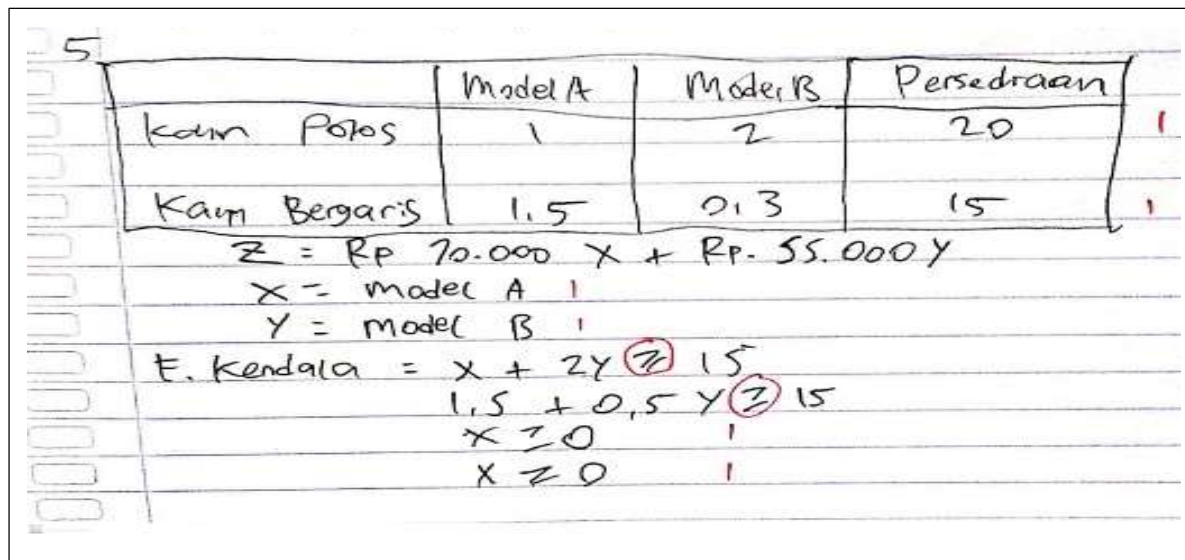 5
Model A Model B Persediaan
Kain Polos 1 2 20 1
Kain Bergaris 1.5 0,3 15 1
Z = Rp 70.000 X + Rp. 55.000 Y
X = model A 1
Y = model B 1
F. Kendala = X + 2Y ≥ 15
1,5 + 0,5 Y ≥ 15
X ≥ 0 1
X ≥ 0 1